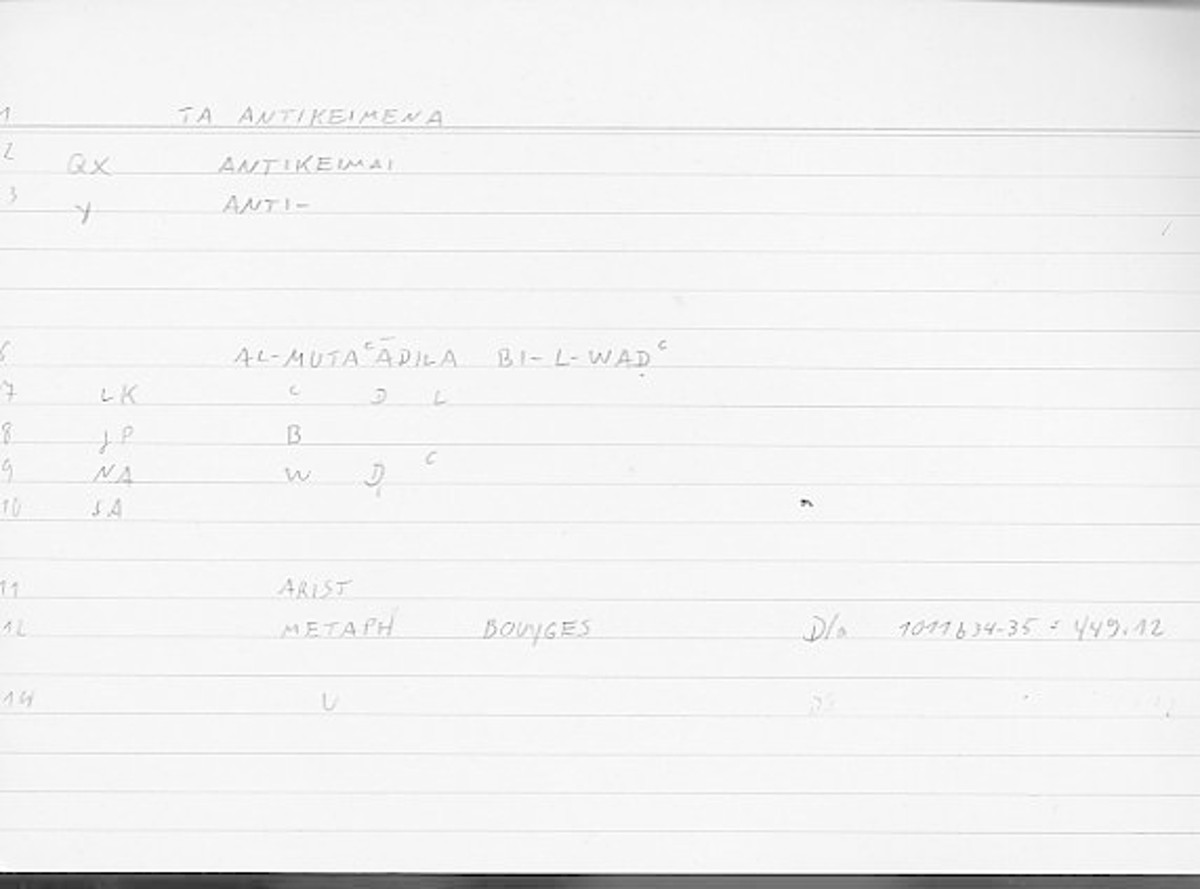 1 TA ANTIKEIMENA
2 QX ANTIKEIMAI
3 y ANTI-
6 AL-MUTAᶜĀDILA BI-L-WAḌᶜ
7 LK ᶜ D L
8 JP B
9 NA W Ḍ ᶜ
10 SA
11 ARIST
12 METAPH BOUYGES D/a 1011b34-35 = 449.12
14 U